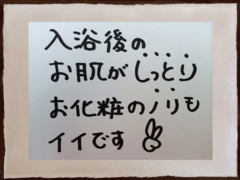 入浴後の
お肌がしっとり
お化粧のノリも
イイです